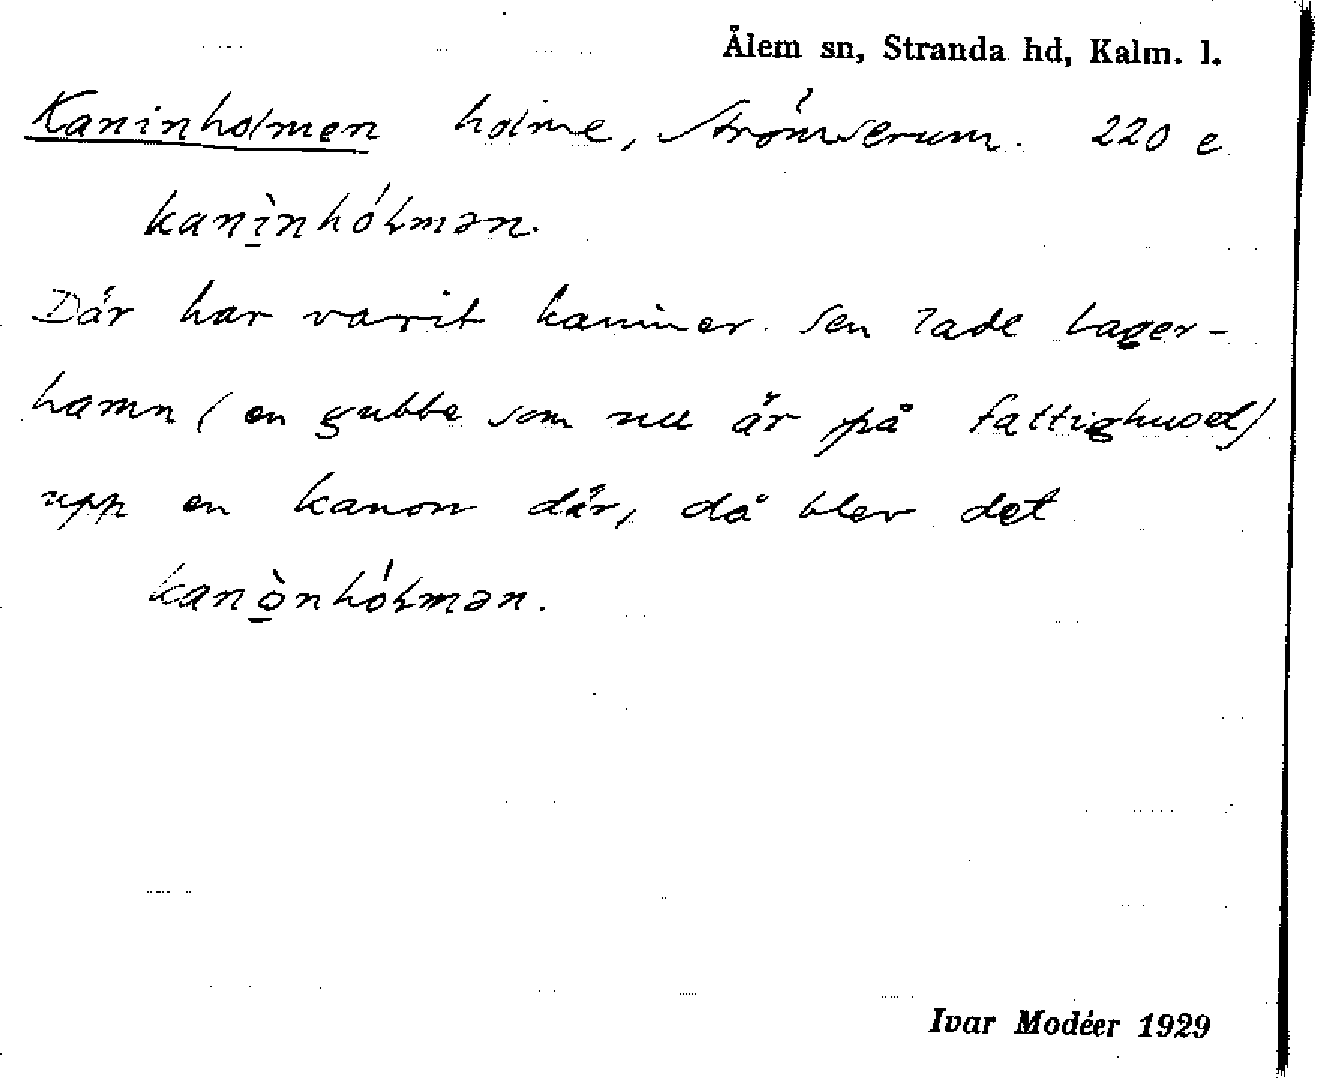 Ålem sn, Stranda hd, Kalm. l.
Kaninholmen holme, Strömserum. 220 e
kanì̱nhólmən.
Där har varit kaniner. Sen lade Lager-
hamn (en gubbe som nu är på fattighuset)
upp en kanon där, då blev det
kanò̱nhólmən.
Ivar Modéer 1929